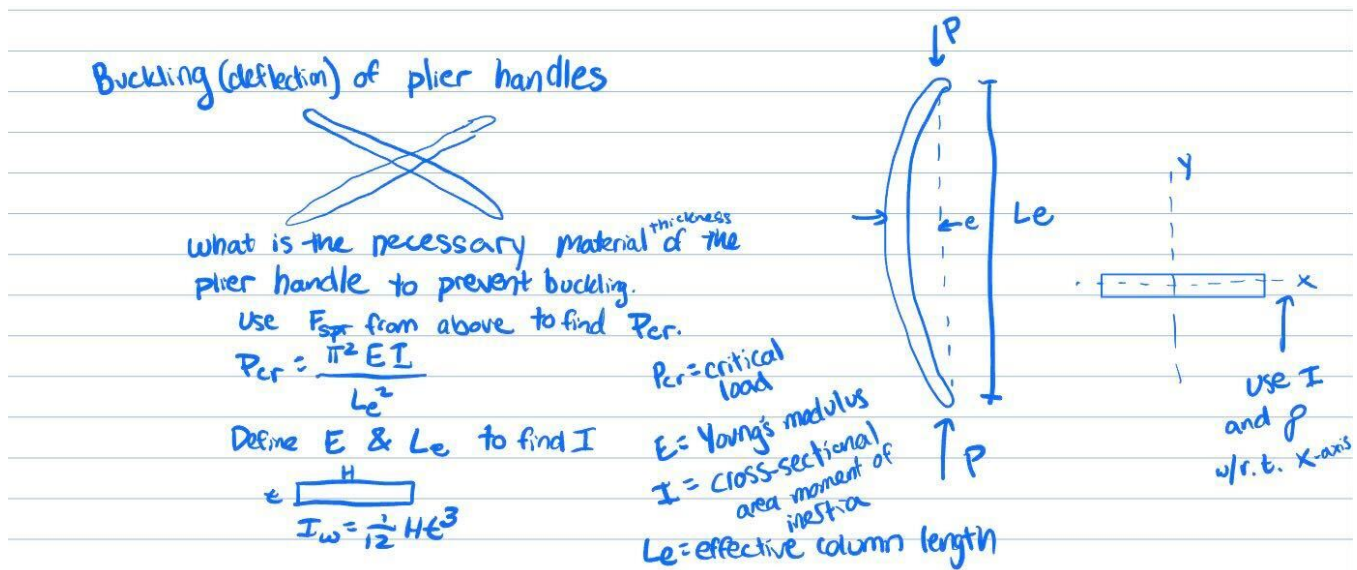 Buckling (deflection) of plier handles
what is the necessary material thickness of the
plier handle to prevent buckling.
use Fspr from above to find Pcr.
Pcr = π² E I / Le²
Define E & Le to find I
H
t
Iω = 1/12 Ht³
Pcr = critical
load
E = Young's modulus
I = cross-sectional
area moment of
inertia
Le = effective column length
P
e
Le
P
Y
X
use I
and ρ
w/r.t. X-axis